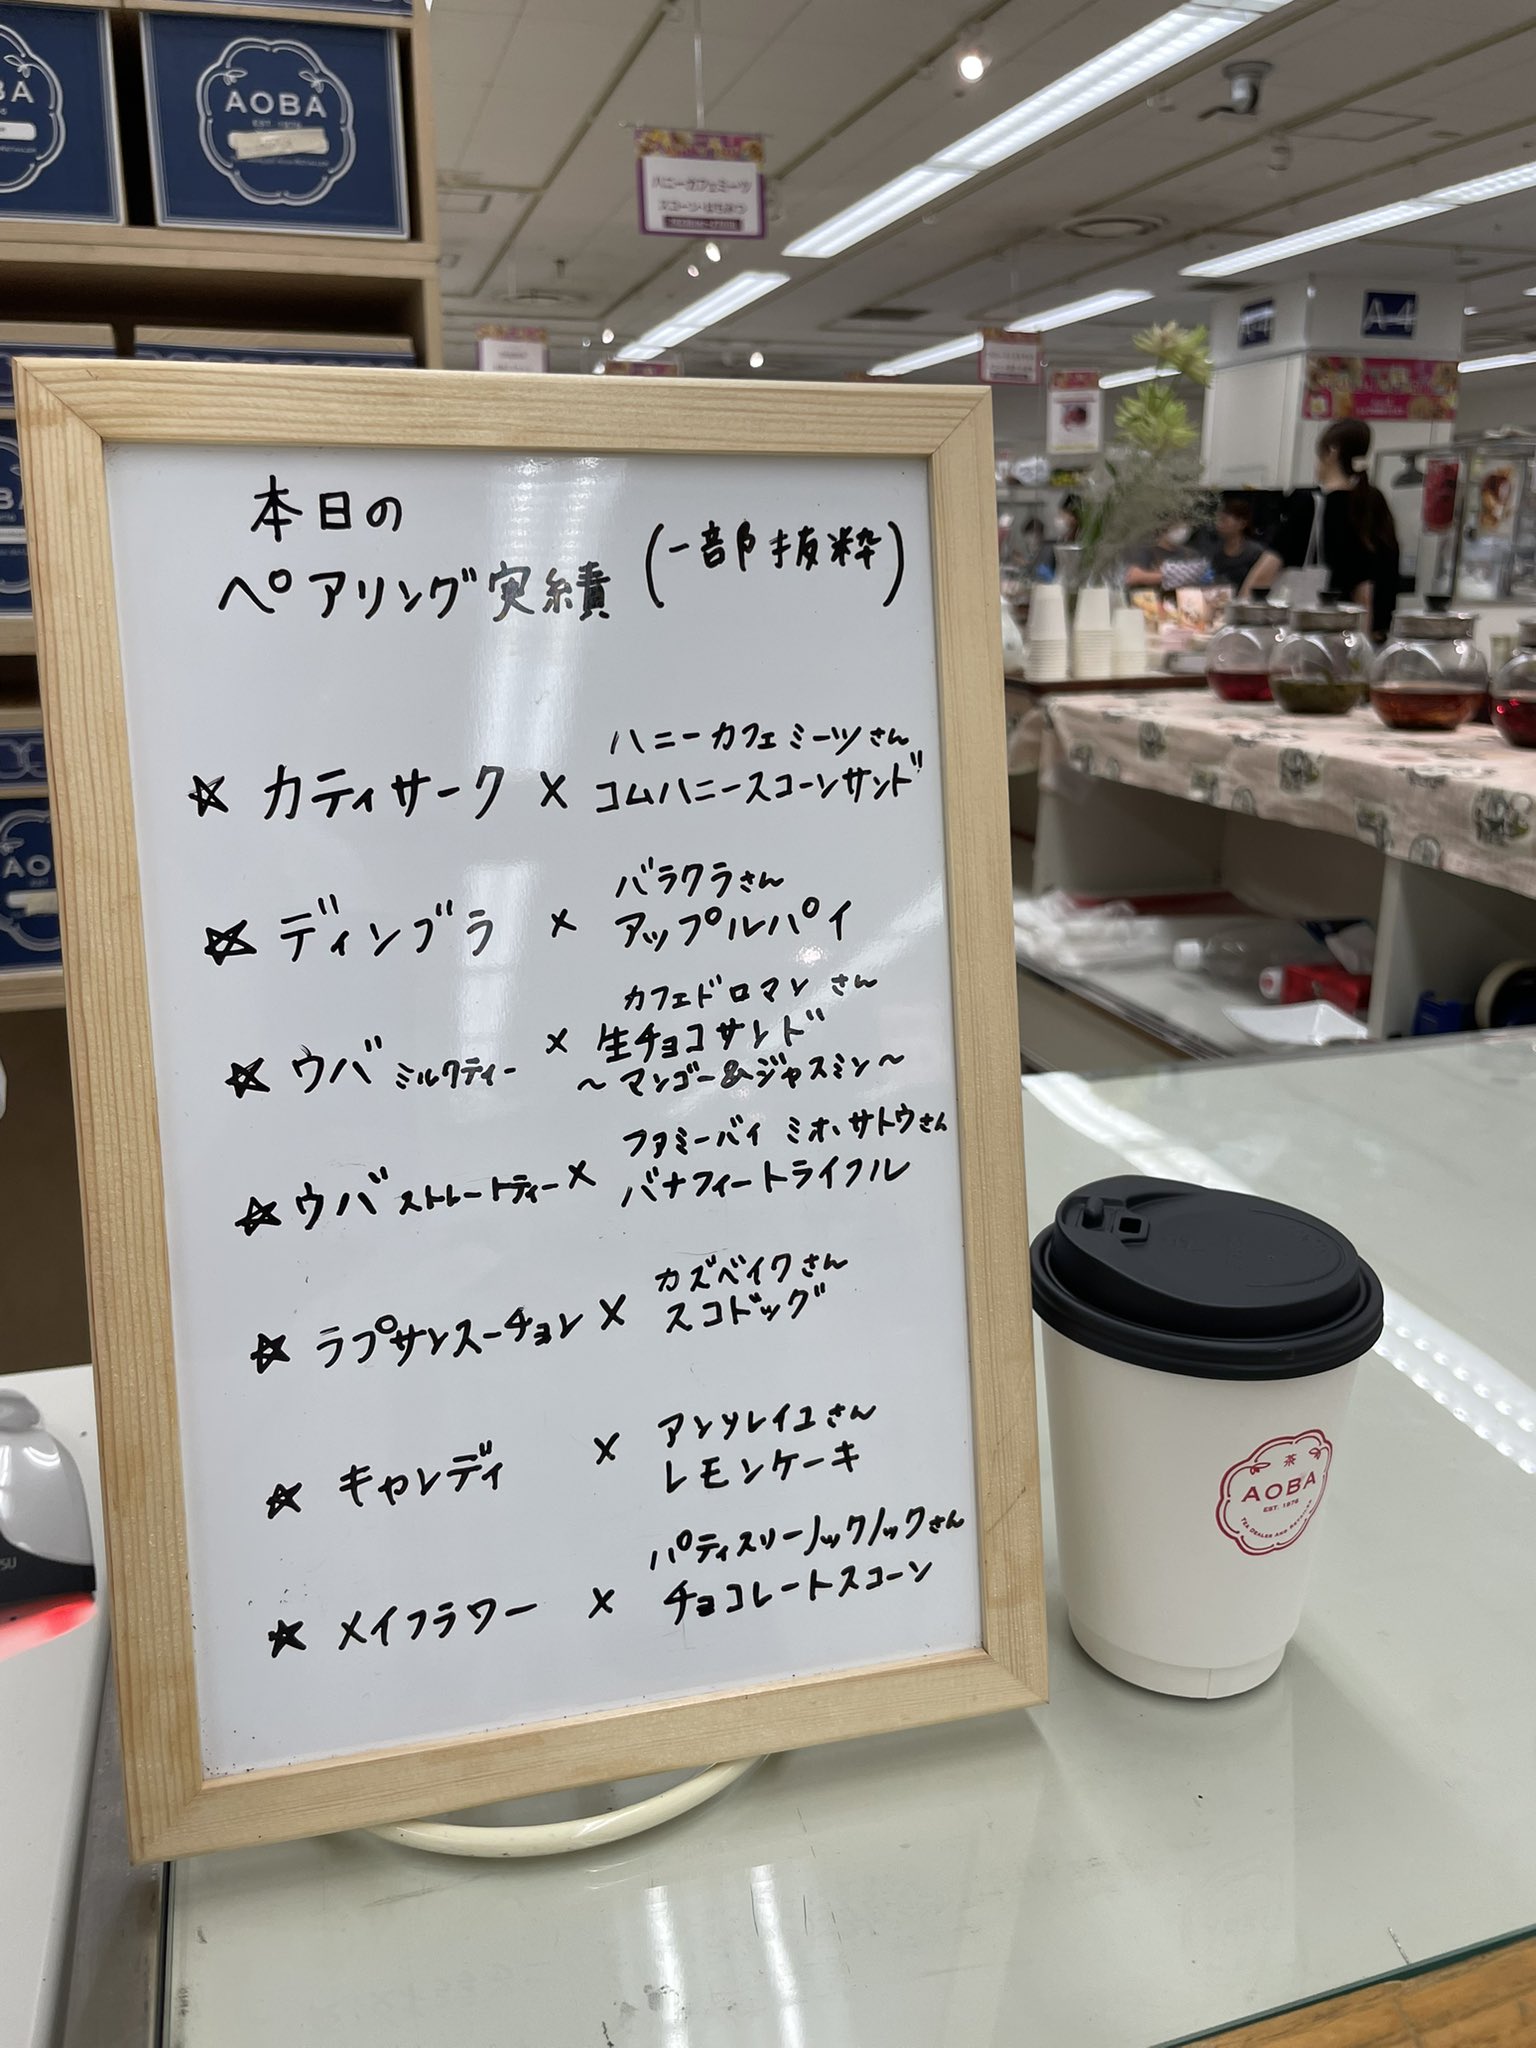 AOBA
EST. 1976
ハニーカフェミーツ
スコーン・はちみつ
A-4
本日の
ペアリング実績 (一部抜粋)
ハニーカフェミーツさん
☆ カティサーク × コムハニースコーンサンド
バラクラさん
☆ ディンブラ × アップルパイ
カフェドロマンさん
☆ ウバ ミルクティー × 生チョコサンド
～マンゴー&ジャスミン～
ファミーバイ ミオ・サトウさん
☆ ウバ ストレートティー × バナフィートライフル
カズベイクさん
☆ ラプサンスーチョン × スコドッグ
アンソレイユさん
☆ キャンディ × レモンケーキ
パティスリーノックノックさん
☆ メイフラワー × チョコレートスコーン
茶
AOBA
EST. 1976
TEA DEALER AND RETAILER